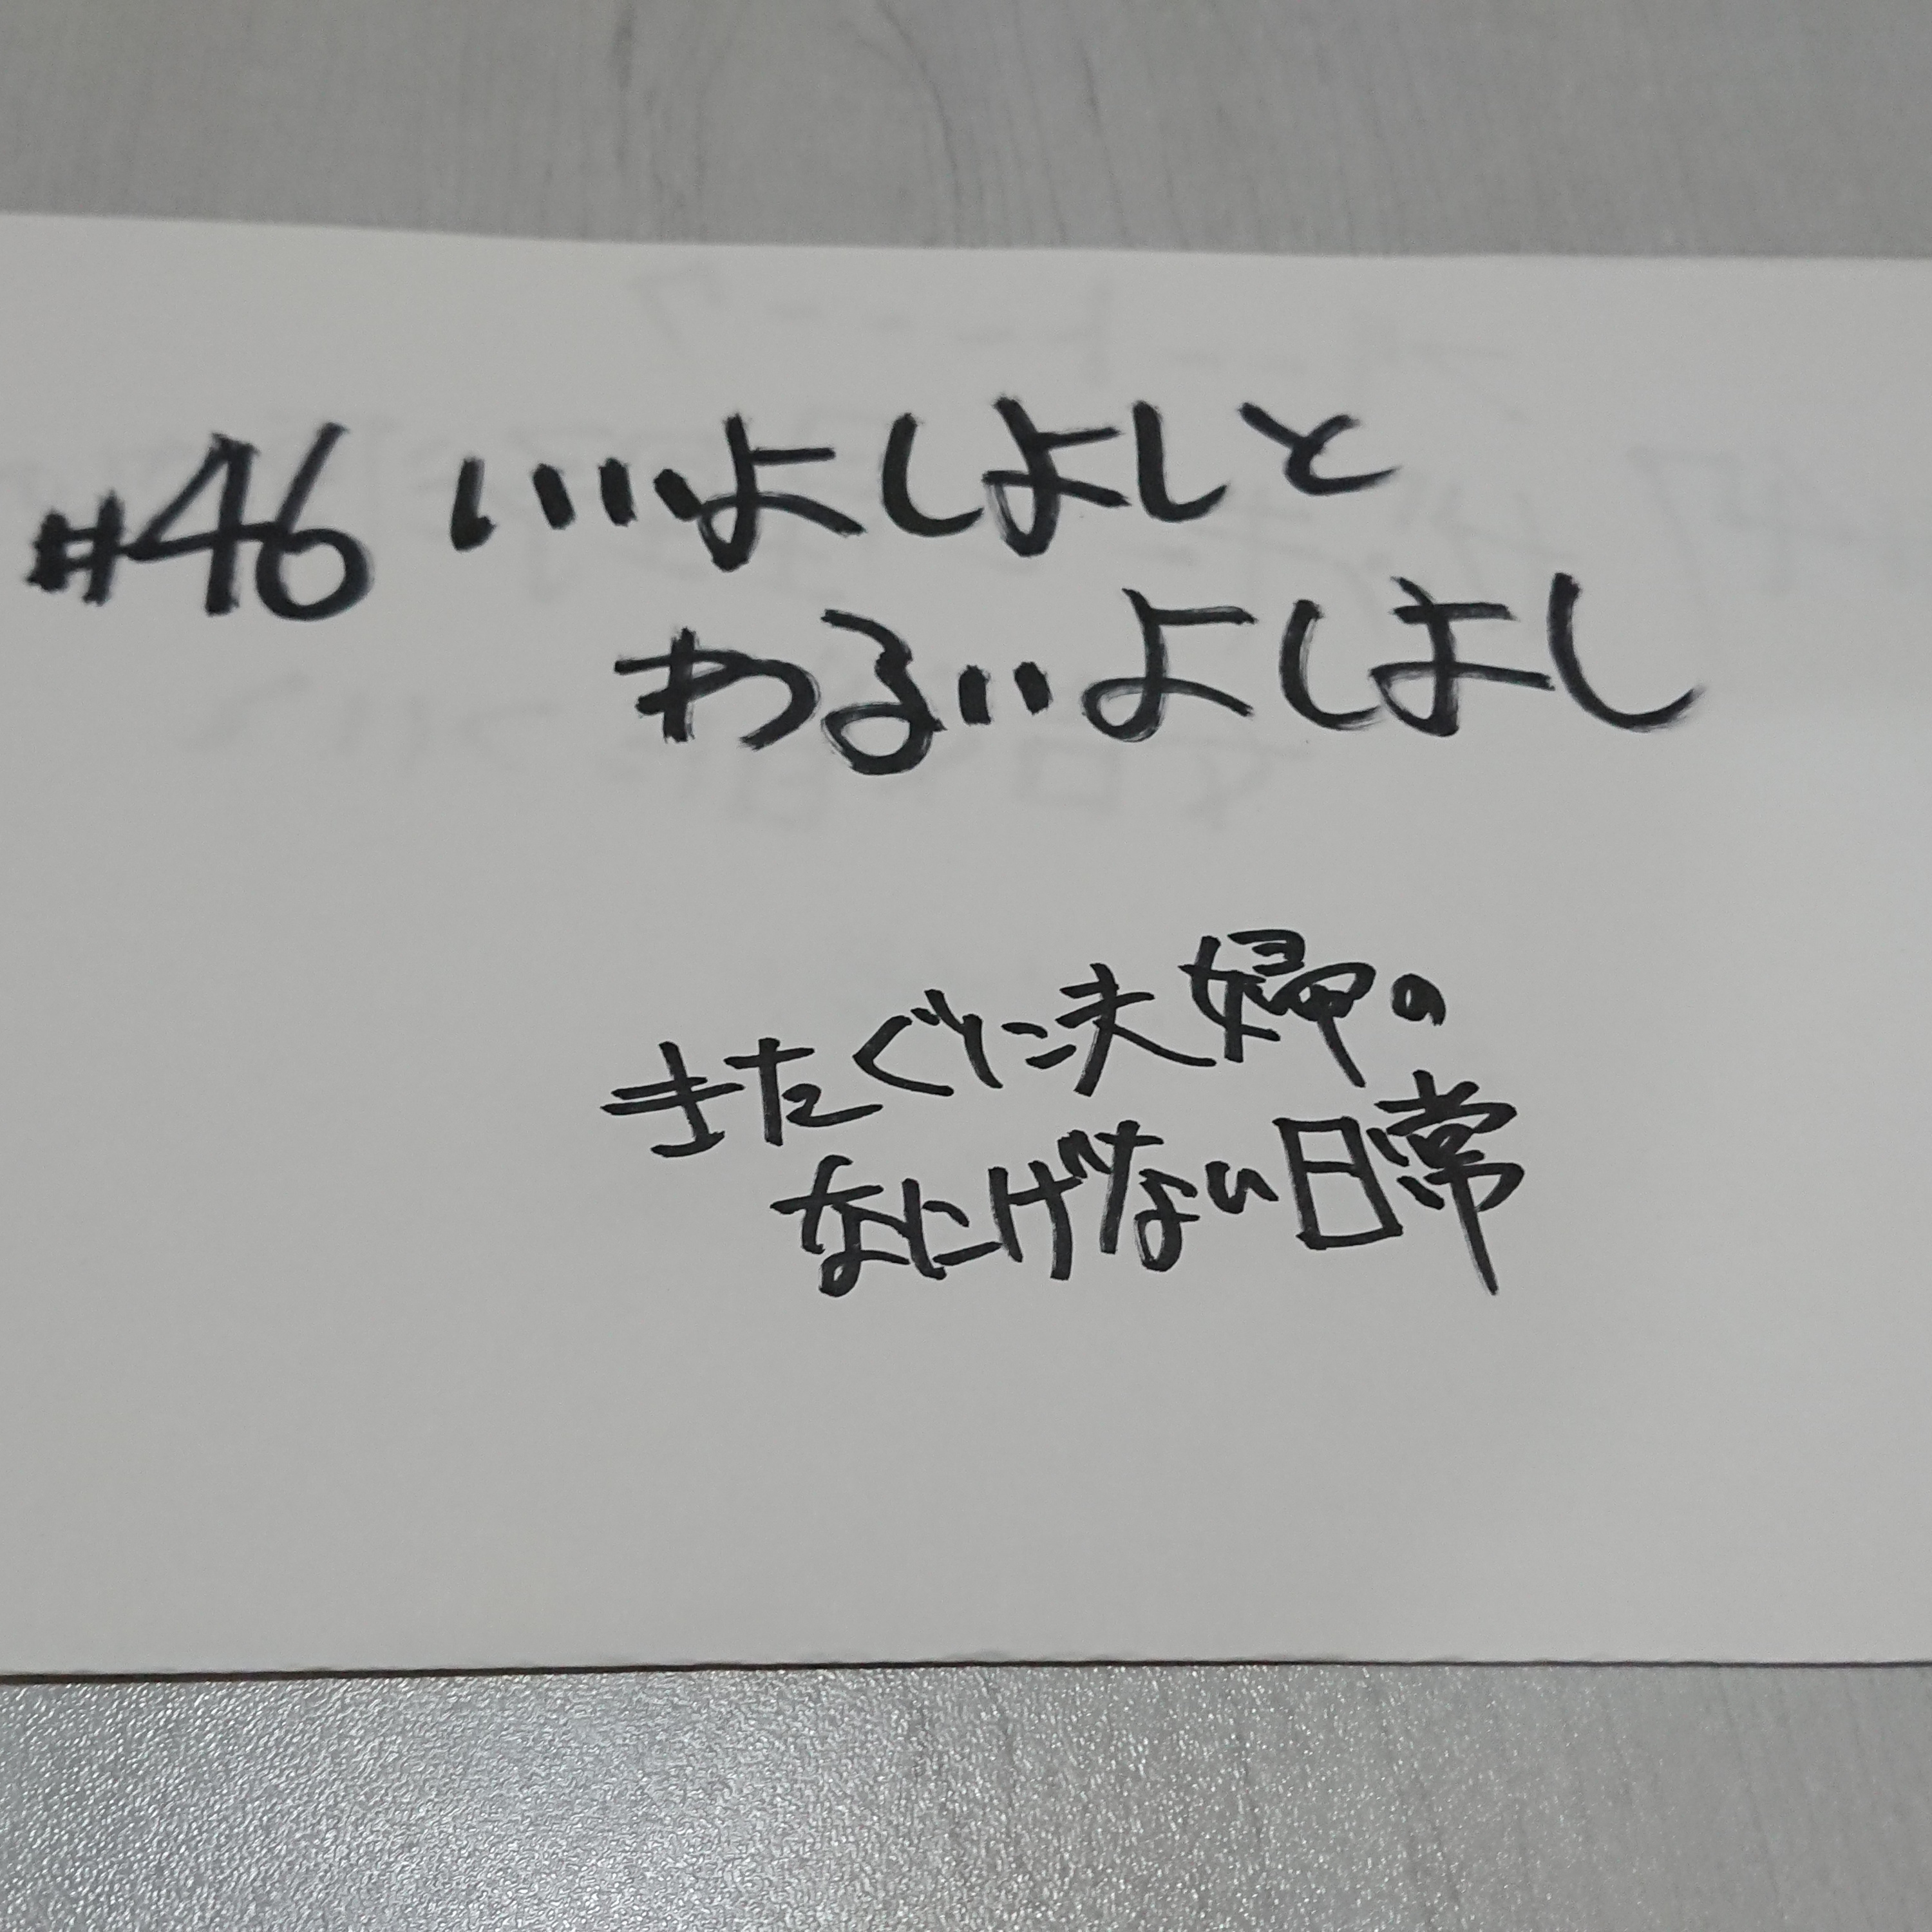 #46 いいよしよしと
わるいよしよし
きたぐに夫婦の
なにげない日常